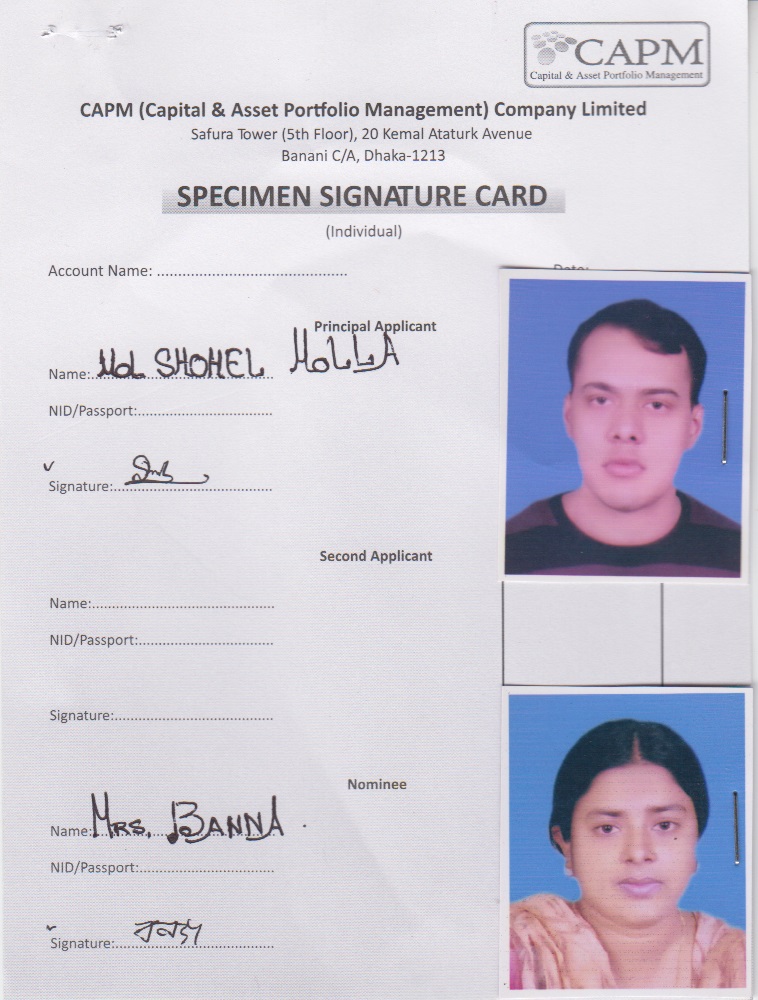 CAPM
Capital & Asset Portfolio Management
CAPM (Capital & Asset Portfolio Management) Company Limited
Safura Tower (5th Floor), 20 Kemal Ataturk Avenue
Banani C/A, Dhaka-1213
SPECIMEN SIGNATURE CARD
(Individual)
Account Name: ............................................
Date:
Principal Applicant
Name: Md. SHOHEL MOLLA
NID/Passport:................................
Signature:......................................
Second Applicant
Name:............................................
NID/Passport:................................
Signature:......................................
Nominee
Name: MRS. BANNA
NID/Passport:................................
Signature:......................................